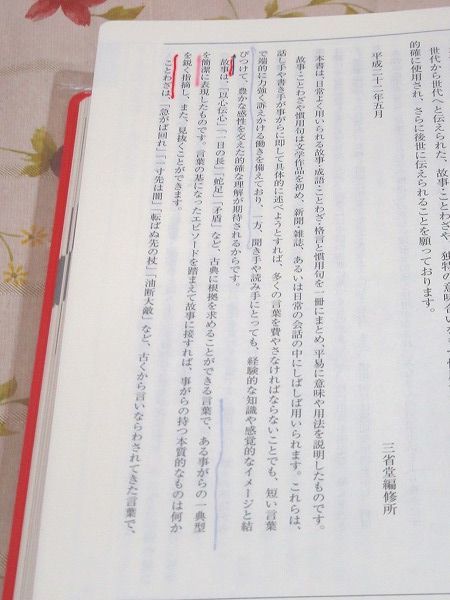 世代から世代へと伝えられた、故事・ことわざや、独特の意味合い
的確に使用され、さらに後世に伝えられることを願っております。
平成二十二年五月
三省堂編修所
本書は、日常よく用いられる故事・成語・ことわざ・格言と慣用句を一冊にまとめ、平易に意味や用法を説明したものです。
故事・ことわざや慣用句は文学作品を初め、新聞・雑誌、あるいは日常の会話の中にしばしば用いられます。これらは、
話し手や書き手が事がらに即して具体的に述べようとすれば、多くの言葉を費やさなければならないことでも、短い言葉
で端的に力強く訴えかける働きを備えており、一方、聞き手や読み手にとっても、経験的な知識や感覚的なイメージと結
びつけて、豊かな感性を交えた的確な理解が期待されるからです。
故事は、「以心伝心」「一日の長」「蛇足」「矛盾」など、古典に根拠を求めることができる言葉で、ある事がらの一典型
を簡潔に表現したものです。言葉の基になったエピソードを踏まえて故事に接すれば、事がらの持つ本質的なものは何か
を鋭く指摘し、また、見抜くことができます。
ことわざは、「急がば回れ」「一寸先は闇」「転ばぬ先の杖」「油断大敵」など、古くから言いならわされてきた言葉で、